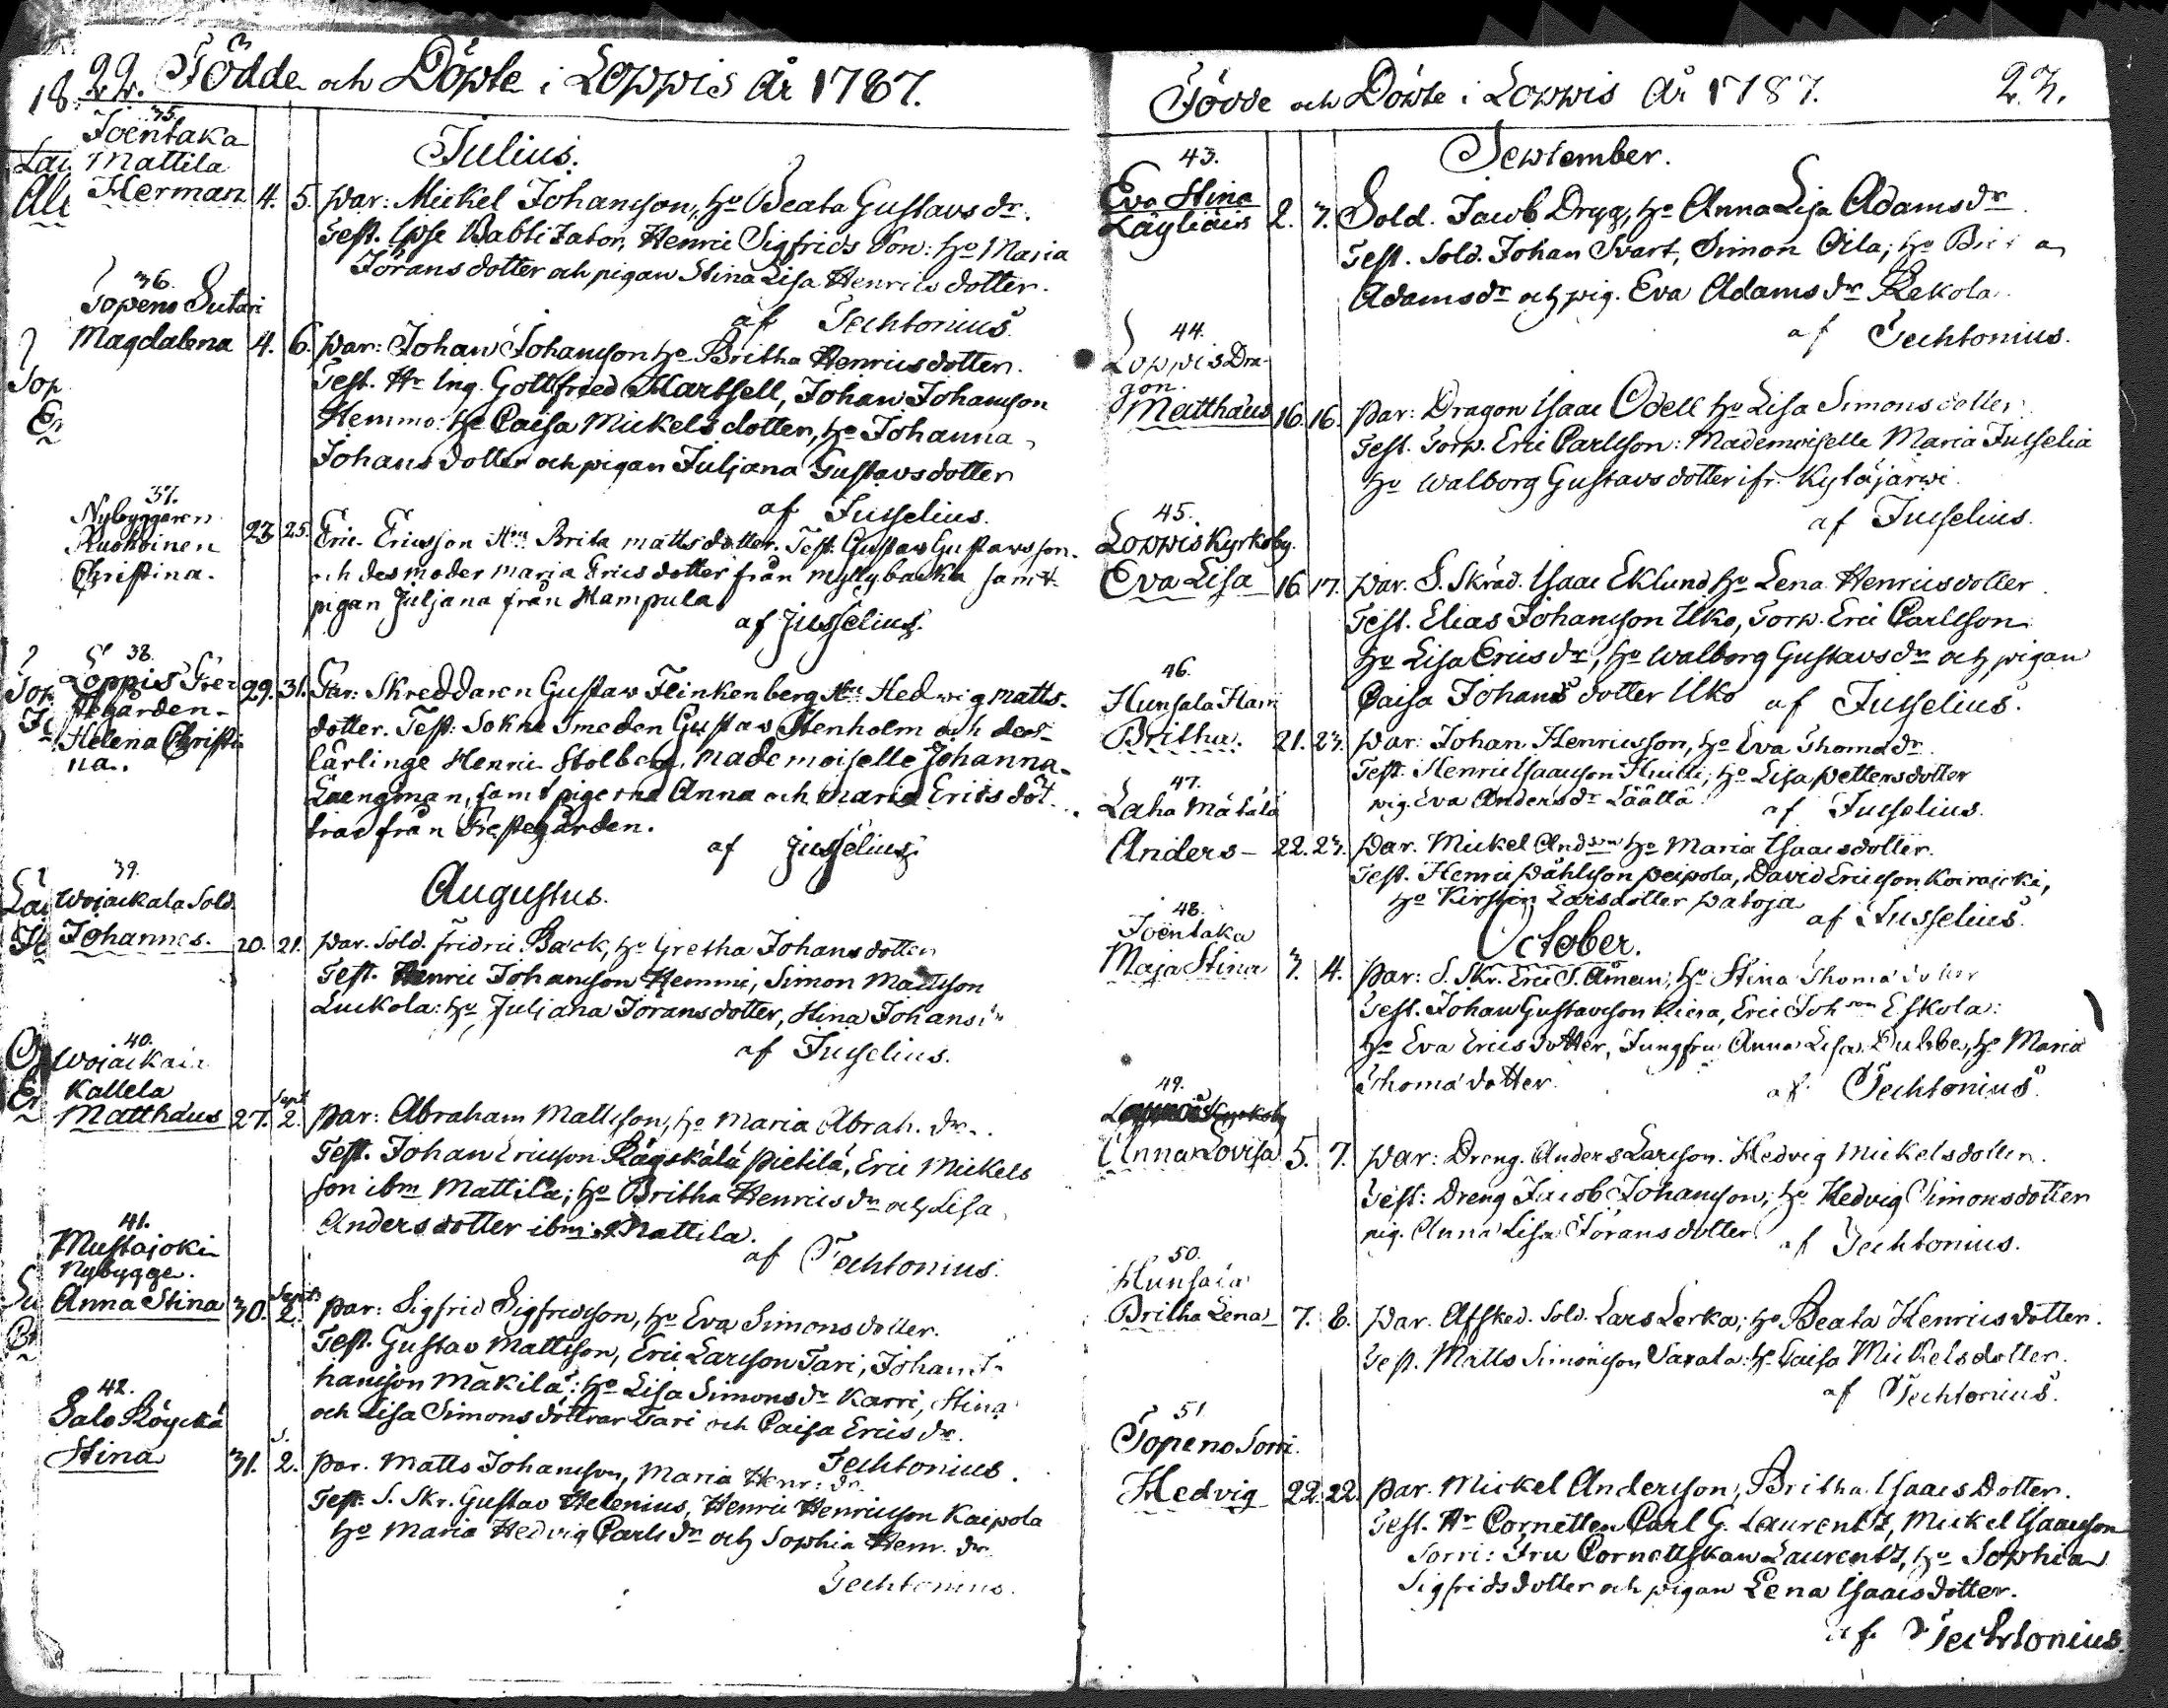 22. Födde och Döpte i Loppis År 1787.
Julius.
35.
Joentaka
Mattila
Herman 4. 5. Par: Mickel Johansson, Ho Beata Gustavs dr.
Test. Ipse Babtizator, Henric Sigfrids son: Ho Maria
Jöransdotter och pigan Stina Lisa Henrics dotter.
af Techtonius.
36.
Topeno Sutari
Magdalena 4. 6. Par: Johan Johansson Ho Britha Henricsdotter.
Test. Hr Ing. Gottfried Hartsell, Johan Johansson
Hemmo: Ho Caisa Mickelsdotter, Ho Johanna
Johansdotter och pigan Juljana Gustavsdotter
af Jusselius.
37.
Nybyggaren
Ruohoinen 23 25. Eric Ericsson Hu Brita mattsdotter. Test. Gustav Gustavsson.
Christina. och des moder maria Ericsdotter från myllybacka samt
pigan Juljana från Hampula
af Jusselius.
38.
Loppis Pre
stegården 29. 31. Far: Skreddaren Gustaw Flinkenberg Hu Hedwig matts-
Helena Christi dotter. Test: Sokne Smeden Gustav Stenholm och des
na. lärlinge Henric Stolberg, mademoiselle Johanna
Laengman, samt pigorna Anna och maria Erics döt
trar från Prestegården.
af Jusselius
Augustus.
39.
Wojackala Sold.
Johannes. 20. 21. Par. Sold. fridric Back, Ho Gretha Johansdotter
Test. Henric Johansson Hemmi, Simon Mattsson
Luckola: Ho Juljana Joransdotter, Stina Johansdr
af Jusselius.
40.
Wojackala
Kallela
Matthäus 27. Sept 2. Par: Abraham Mattsson, Ho Maria Abrah. dr.
Test. Johan Ericsson Rägskälä Pietilä, Eric Mickels
son ibm Mattila; Ho Britha Henricsdr och Lisa
Andersdotter ibm Mattila.
af Techtonius.
41.
Mustajoki
Nybygge.
Anna Stina 30. Sept. 2. Par: Sigfrid Sigfridsson, Ho Eva Simonsdotter.
Test. Gustav Mattsson, Eric Larsson Tari, Johan Jo-
hansson Mäkilä: Ho Lisa Simonsdr Karri, Stina
och Lisa Simonsdöttrar Tari och Caisa Ericsdr.
Techtonius.
42.
Salo Röyckä
Stina 31. S. 2. Par. Matts Johansson, Maria Henr: dr.
Test: S. Skr. Gustav Helenius, Henric Henricsson Kaipola
Ho Maria Hedvig Carlsdr och Sophia Henr. dr
Techtonius.
Födde och Döpte i Loppis År 1787. 23.
September.
43.
Eva Stina
Läyliäis 2. 3. Sold. Jacob Drygg, Ho Anna Lisa Adamsdr
Test. Sold. Johan Svart, Simon Oila; Ho
Adamsdr och pig. Eva Adamsdr Rekola.
af Techtonius.
44.
Loppis Dra-
gon.
Matthäus 16. 16. Par: Dragon Isaac Odell Ho Lisa Simonsdotter
Test. Torp. Eric Carlsson: Mademoiselle Maria Jusselia
Ho Walborg Gustavsdotter ifr. Kytäjärwi.
af Jusselius.
45.
Loppis Kyrkoby.
Eva Lisa 16. 17. Par. S. Skräd. Isaac Eklund, Ho Lena Henricsdotter
Test. Elias Johansson Uko, Torp. Eric Carlsson
Ho Lisa Ericsdr, Ho Walborg Gustavsdr och pigan
Caisa Johansdotter Uko af Jusselius.
46.
Hunsala Harri
Britha. 21. 23. Par: Johan Henricsson, Ho Eva Thomædr
Test. Henric Isaacsson Huitti, Ho Lisa Pettersdotter
pig. Eva Andersdr Läällä. af Jusselius.
47.
Laha Mätälä
Anders 22. 23. Par. Mickel Andsson Ho Maria Isaacsdotter.
Test. Henric Påhlsson Peipola, David Ericsson Koiraicki,
Ho Kirstin Larsdotter Patoja af Jusselius.
October.
48.
Joentaka
Maja Stina 3. 4. Par: S. Skr. Eric J. Åman, Ho Stina Thomædotter
Test. Johan Gustavsson Kiera, Eric Johsson Eskola:
Ho Eva Ericsdotter, Jungfru Anna Lisa Dubbe, Ho Maria
Thomædotter. af Techtonius.
49.
Anna Lovisa 5. 7. Par: Dreng. Anders Larsson. Hedvig Mickelsdotter.
Test: Dreng Jacob Johansson; Ho Hedvig Simonsdotter
pig. Anna Lisa Göransdotter af Techtonius.
50.
Hunsala
Britha Lena 7. 8. Par. Afsked. Sold. Lars Lerka; Ho Beata Henricsdotter.
Test. Matts Simonsson Saxala: H. Caisa Mickelsdotter.
af Techtonius.
51.
Topeno Sorri.
Hedvig 22. 22. Par. Mickel Andersson, Britha Isaacs Dotter.
Test. Hr Cornetten Carl G. Laurentz, Mickel Isaacsson
Sorri: Fru Cornettskan Laurentz, Ho Sophia
Sigfridsdotter och pigan Lena Isaacsdotter.
af Techtonius.